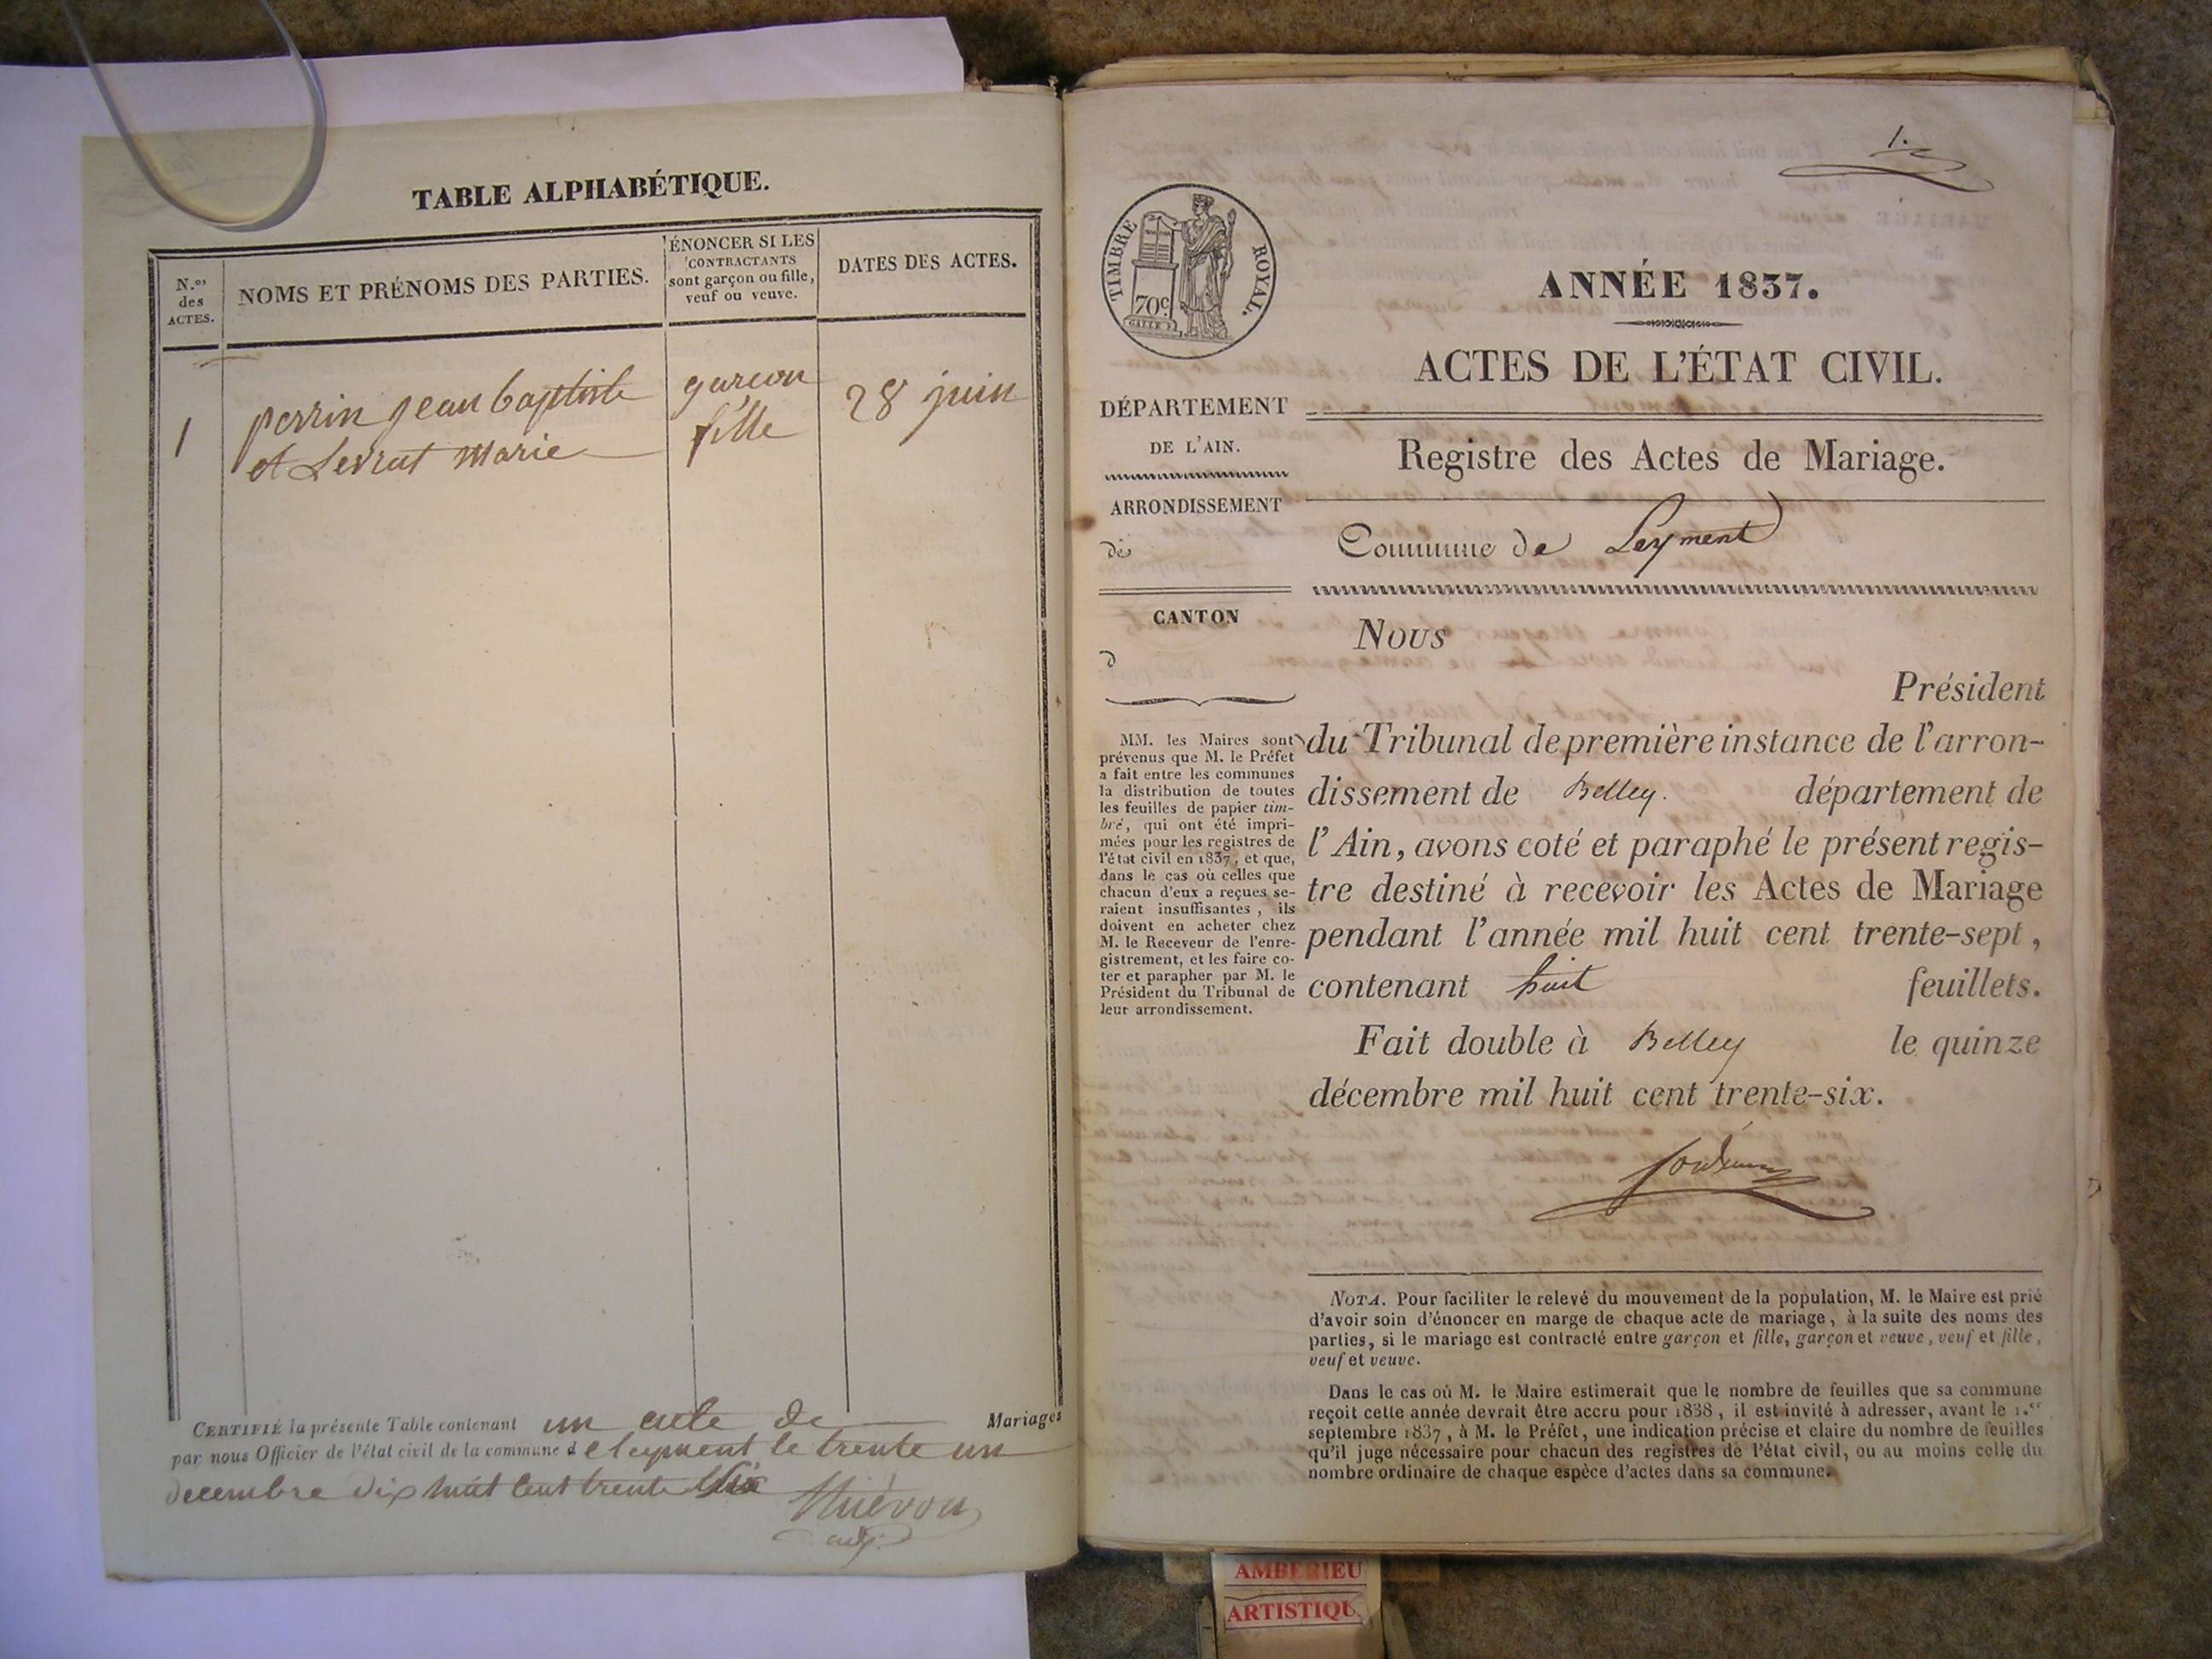 TABLE ALPHABÉTIQUE.
N.os des ACTES.
NOMS ET PRÉNOMS DES PARTIES.
ÉNONCER SI LES
CONTRACTANTS
sont garçon ou fille,
veuf ou veuve.
DATES DES ACTES.
1
perrin jean baptiste
et Levrat marie
garcon
fille
28 juin
CERTIFIÉ la présente Table contenant un acte de Mariages
par nous Officier de l'état civil de la commune de leyment le trente un
decembre dix huit cent trente six
1.
TIMBRE ROYAL.
70c.
ANNÉE 1837.
ACTES DE L'ÉTAT CIVIL.
Registre des Actes de Mariage.
Commune de Leyment
DÉPARTEMENT
DE L'AIN.
ARRONDISSEMENT
de
CANTON
d
MM. les Maires sont
prévenus que M. le Préfet
a fait entre les communes
la distribution de toutes
les feuilles de papier tim-
bré, qui ont été impri-
mées pour les registres de
l'état civil en 1837, et que,
dans le cas où celles que
chacun d'eux a reçues se-
raient insuffisantes, ils
doivent en acheter chez
M. le Receveur de l'enre-
gistrement, et les faire co-
ter et parapher par M. le
Président du Tribunal de
leur arrondissement.
Nous
Président
du Tribunal de première instance de l'arron-
dissement de Belley. département de
l'Ain, avons coté et paraphé le présent regis-
tre destiné à recevoir les Actes de Mariage
pendant l'année mil huit cent trente-sept,
contenant huit feuillets.
Fait double à Belley le quinze
décembre mil huit cent trente-six.
NOTA. Pour faciliter le relevé du mouvement de la population, M. le Maire est prié
d'avoir soin d'énoncer en marge de chaque acte de mariage, à la suite des noms des
parties, si le mariage est contracté entre garçon et fille, garçon et veuve, veuf et fille,
veuf et veuve.
Dans le cas où M. le Maire estimerait que le nombre de feuilles que sa commune
reçoit cette année devrait être accru pour 1838, il est invité à adresser, avant le 1.er
septembre 1837, à M. le Préfet, une indication précise et claire du nombre de feuilles
qu'il juge nécessaire pour chacun des registres de l'état civil, ou au moins celle du
nombre ordinaire de chaque espèce d'actes dans sa commune.
AMBERIEU
ARTISTIQU